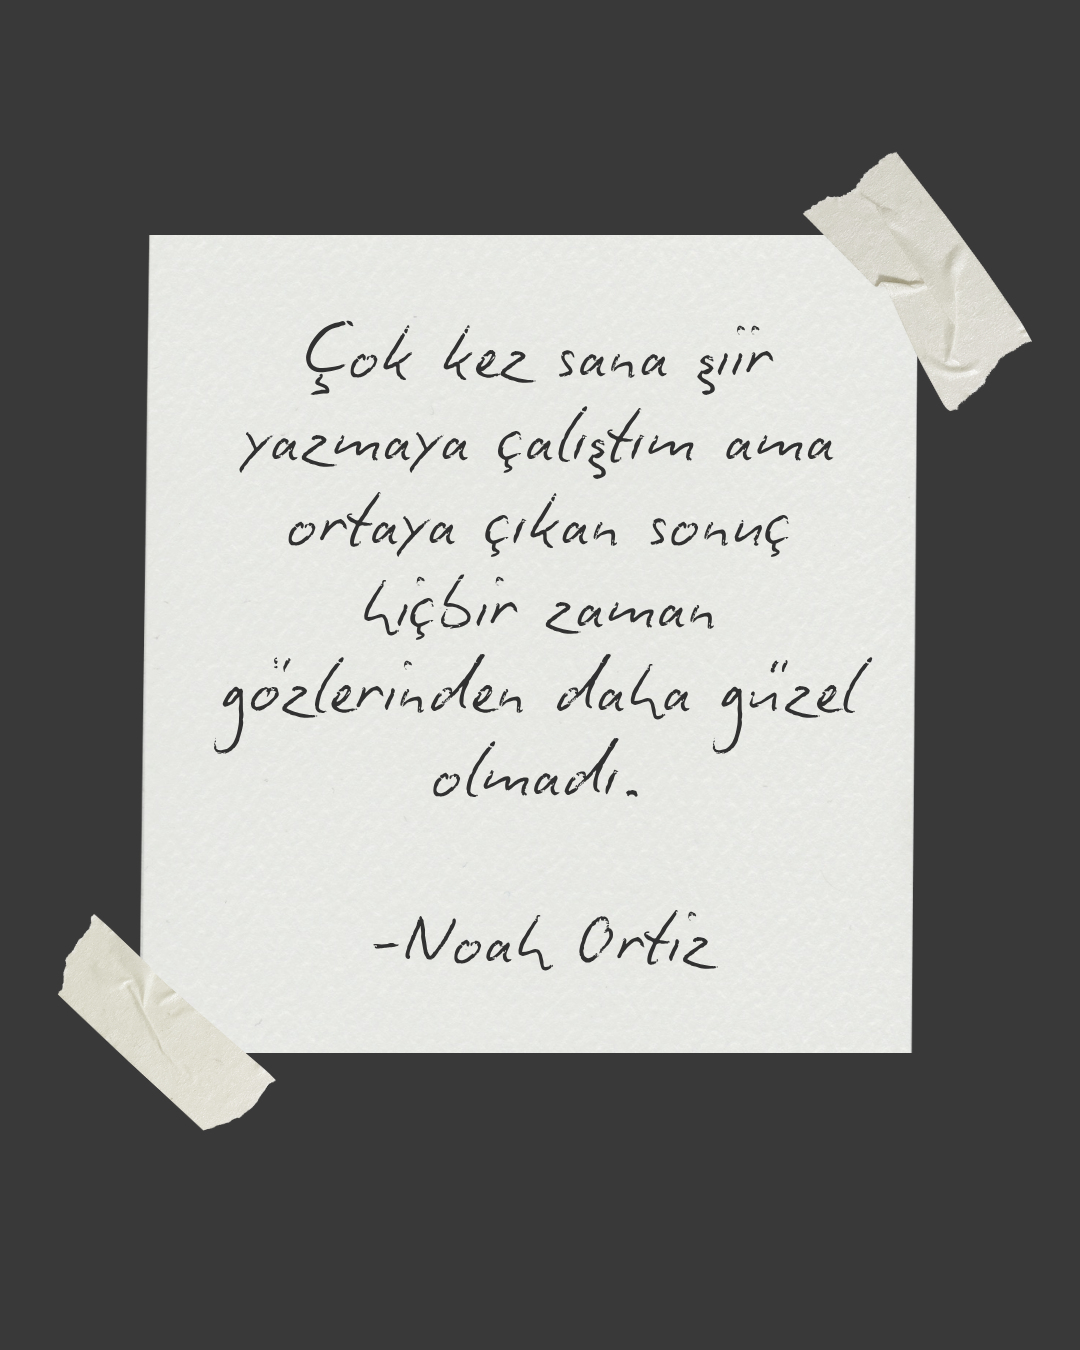 Çok kez sana şiir
yazmaya çalıştım ama
ortaya çıkan sonuç
hiçbir zaman
gözlerinden daha güzel
olmadı.
-Noah Ortiz